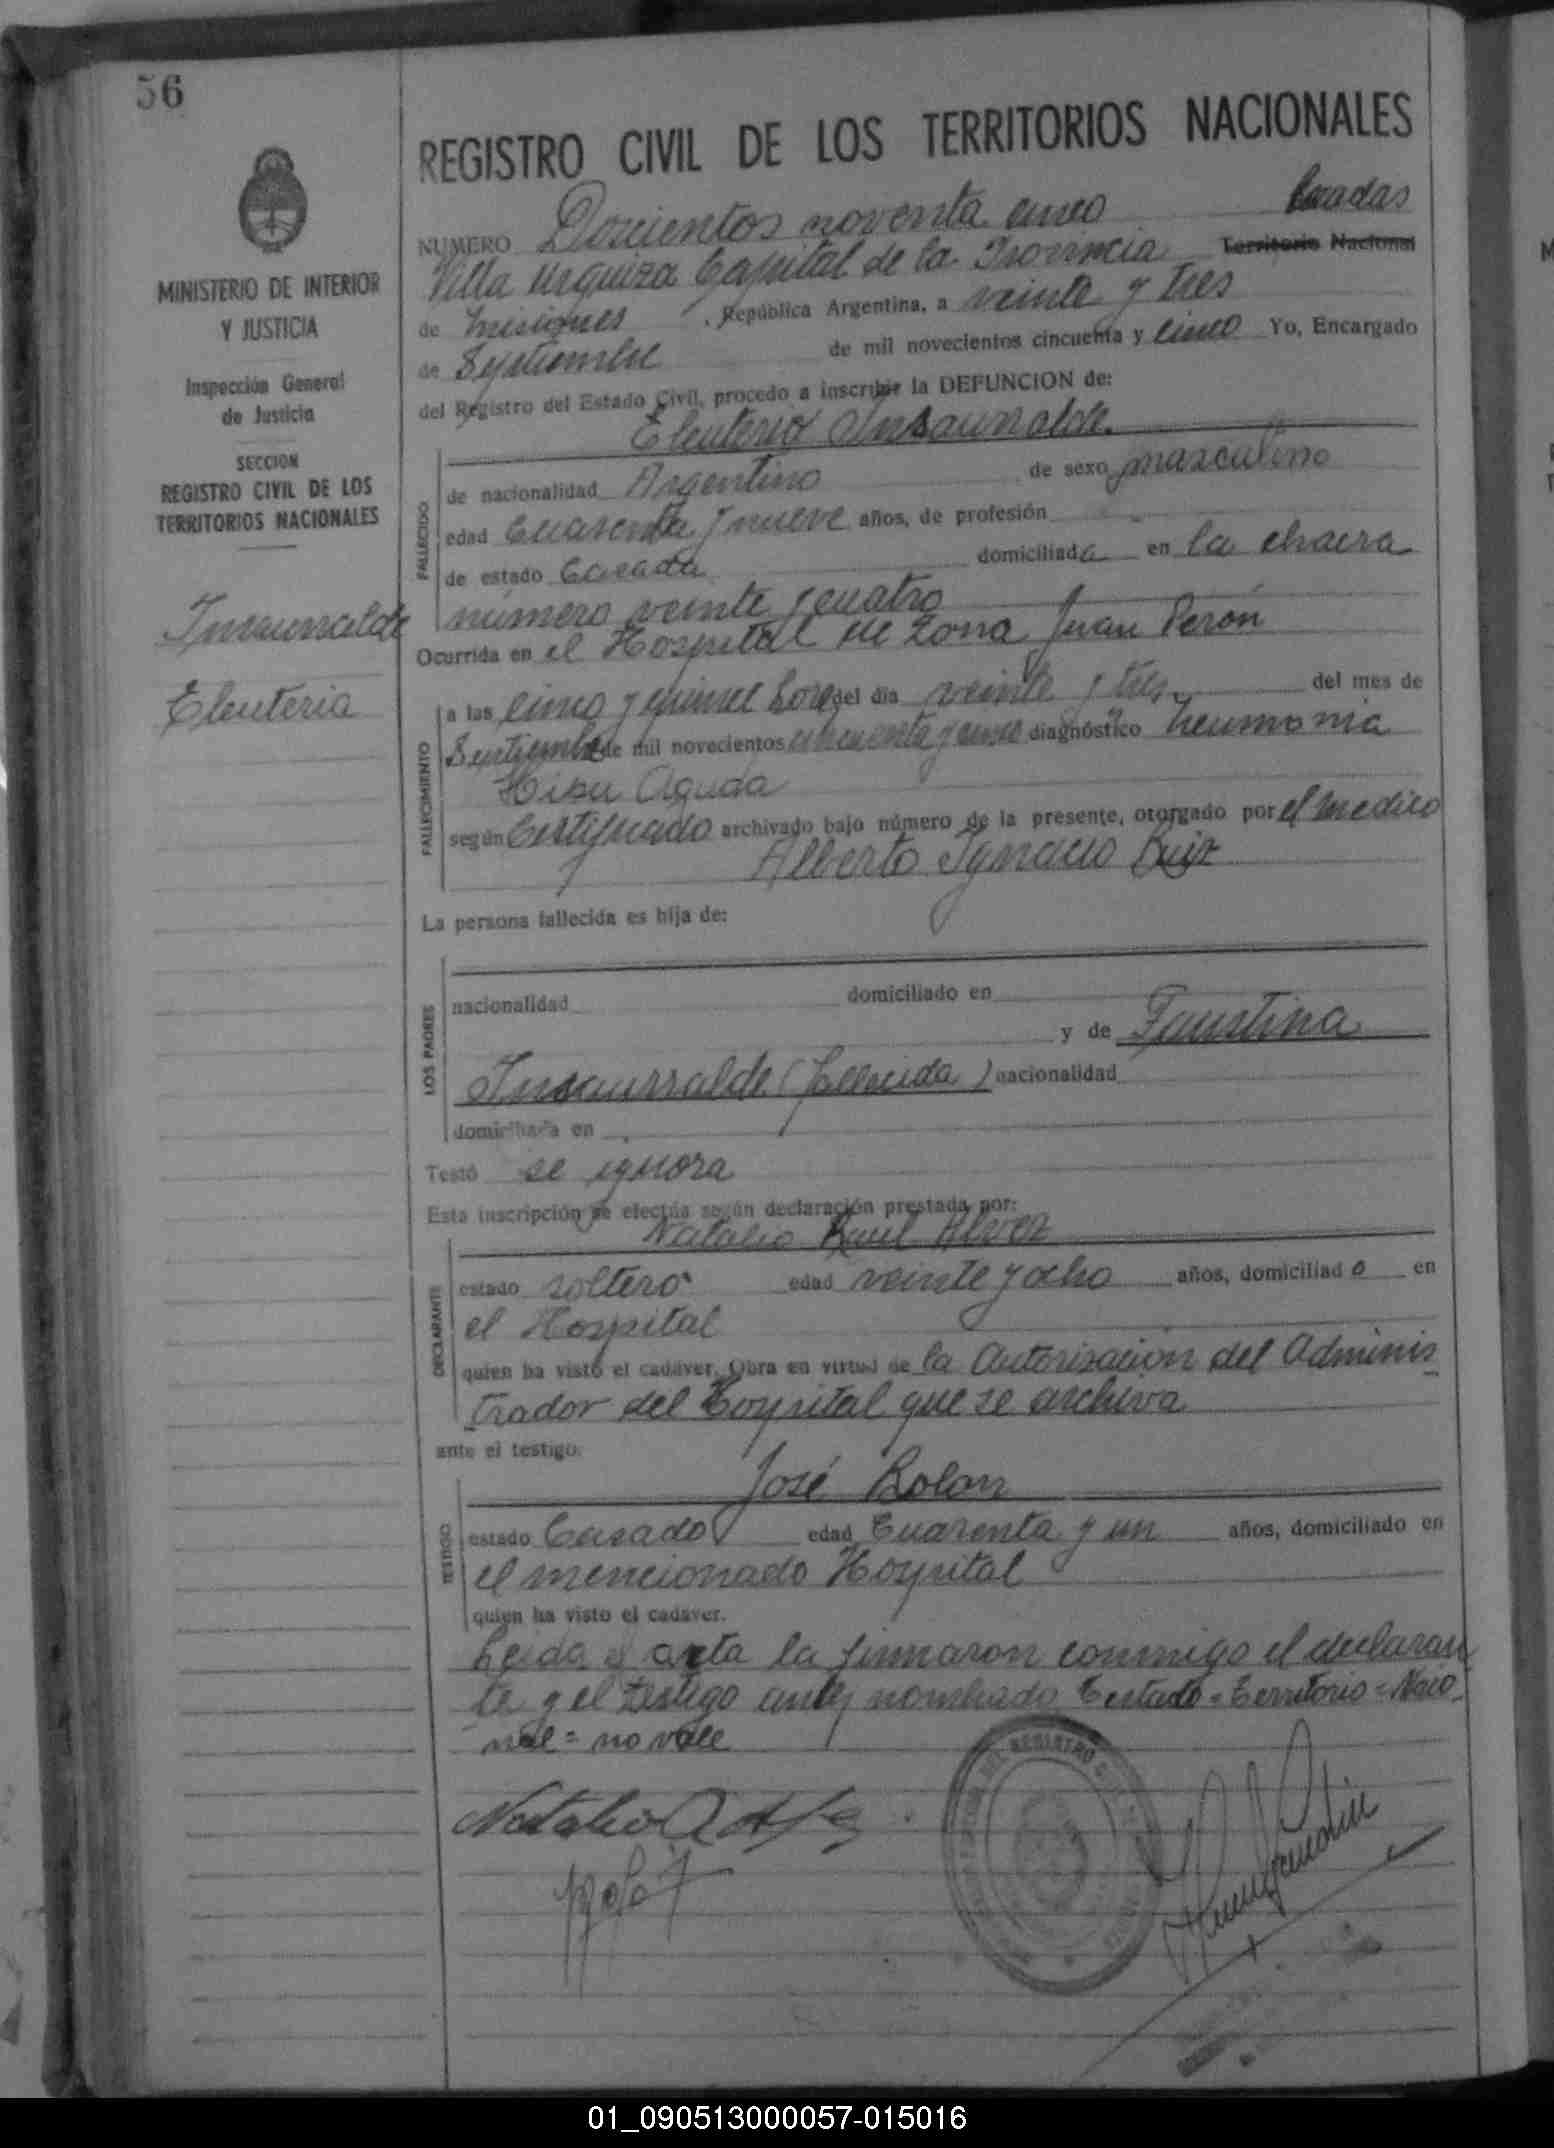 56
REGISTRO CIVIL DE LOS TERRITORIOS NACIONALES
MINISTERIO DE INTERIOR
Y JUSTICIA
Inspección General
de Justicia
SECCION
REGISTRO CIVIL DE LOS
TERRITORIOS NACIONALES
Insaurralde
Eleuteria
NUMERO Doscientos noventa cinco Posadas
Villa Urquiza Capital de la Provincia Territorio Nacional
de Misiones, República Argentina, a veinte y tres
de Septiembre de mil novecientos cincuenta y cinco Yo, Encargado
del Registro del Estado Civil, procedo a inscribir la DEFUNCION de:
Eleuterio Insaurralde.
FALLECIDO
de nacionalidad Argentino de sexo masculino
edad Cuarenta y nueve años, de profesión
de estado Casada domiciliada en la chacra
número veinte y cuatro
Ocurrida en el Hospital de Zona Juan Perón
FALLECIMIENTO
a las cinco y quince horas del día veinte y tres del mes de
Septiembre de mil novecientos cincuenta y cinco diagnóstico Neumonia
Aguda
según Certificado archivado bajo número de la presente, otorgado por el medico
Alberto Ignacio Ruiz
La persona fallecida es hija de:
LOS PADRES
nacionalidad domiciliado en
y de Faustina
Insaurralde (fallecida) nacionalidad
domiciliada en
Testó se ignora
Esta inscripción se efectúa según declaración prestada por:
Natalio Raul Alvez
DECLARANTE
estado soltero edad veinte y ocho años, domiciliado en
el Hospital
quien ha visto el cadáver. Obra en virtud de la Autorisacion del Adminis
trador del Hospital que se archiva
ante el testigo:
José Rolon
TESTIGO
estado Casado edad Cuarenta y un años, domiciliado en
el mencionado Hospital
quien ha visto el cadaver.
Leida el acta la firmaron conmigo el declaran
te y el testigo antes nombrado Testado = Territorio = Nacio
nal = no vale
REGISTRO
01_090513000057-015016